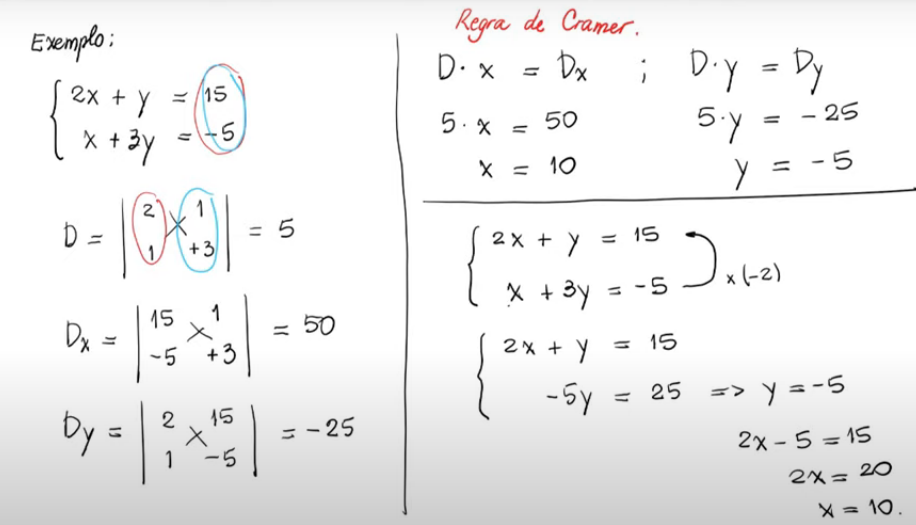 Exemplo:
2x + y = 15
x + 3y = -5
D = | 2 1 | = 5
| 1 +3 |
Dx = | 15 1 | = 50
| -5 +3 |
Dy = | 2 15 | = -25
| 1 -5 |
Regra de Cramer.
D · x = Dx ; D · y = Dy
5 · x = 50 5 · y = -25
x = 10 y = -5
2x + y = 15
x + 3y = -5 x (-2)
2x + y = 15
-5y = 25 => y = -5
2x - 5 = 15
2x = 20
x = 10.